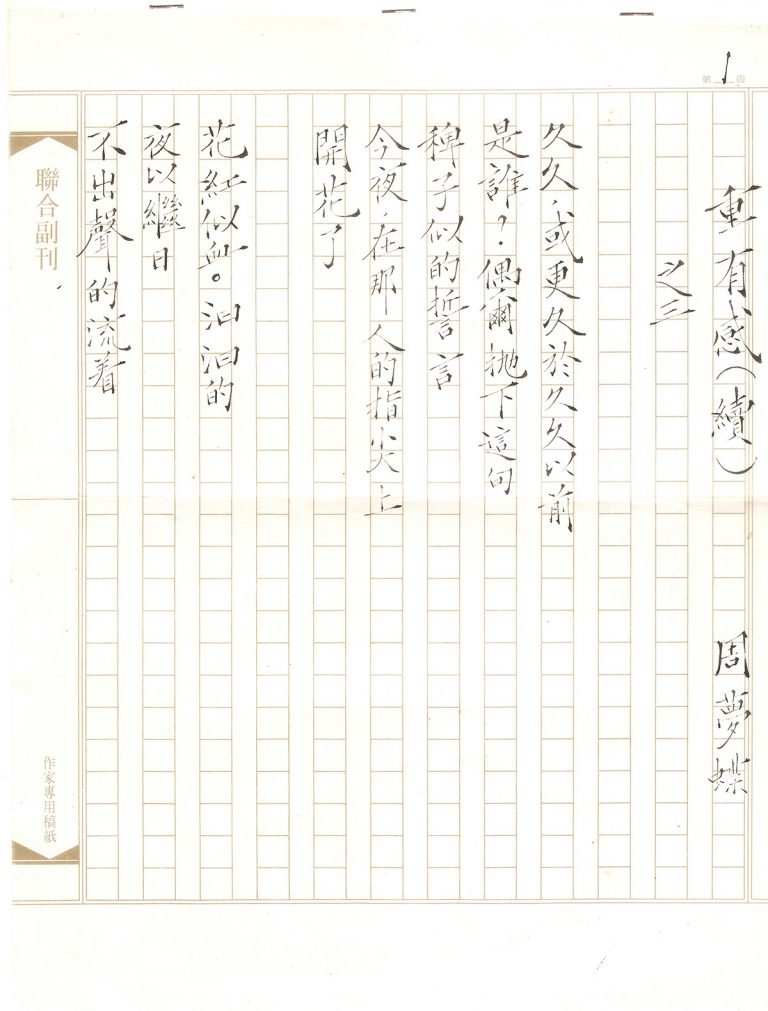 第1頁
重有感（續） 周夢蝶
之三
久久，或更久於久久以前
是誰？偶爾拋下這句
稗子似的誓言
今夜，在那人的指尖上
開花了
花紅似血。汩汩的
夜以繼日
不出聲的流着
聯合副刊
作家專用稿紙